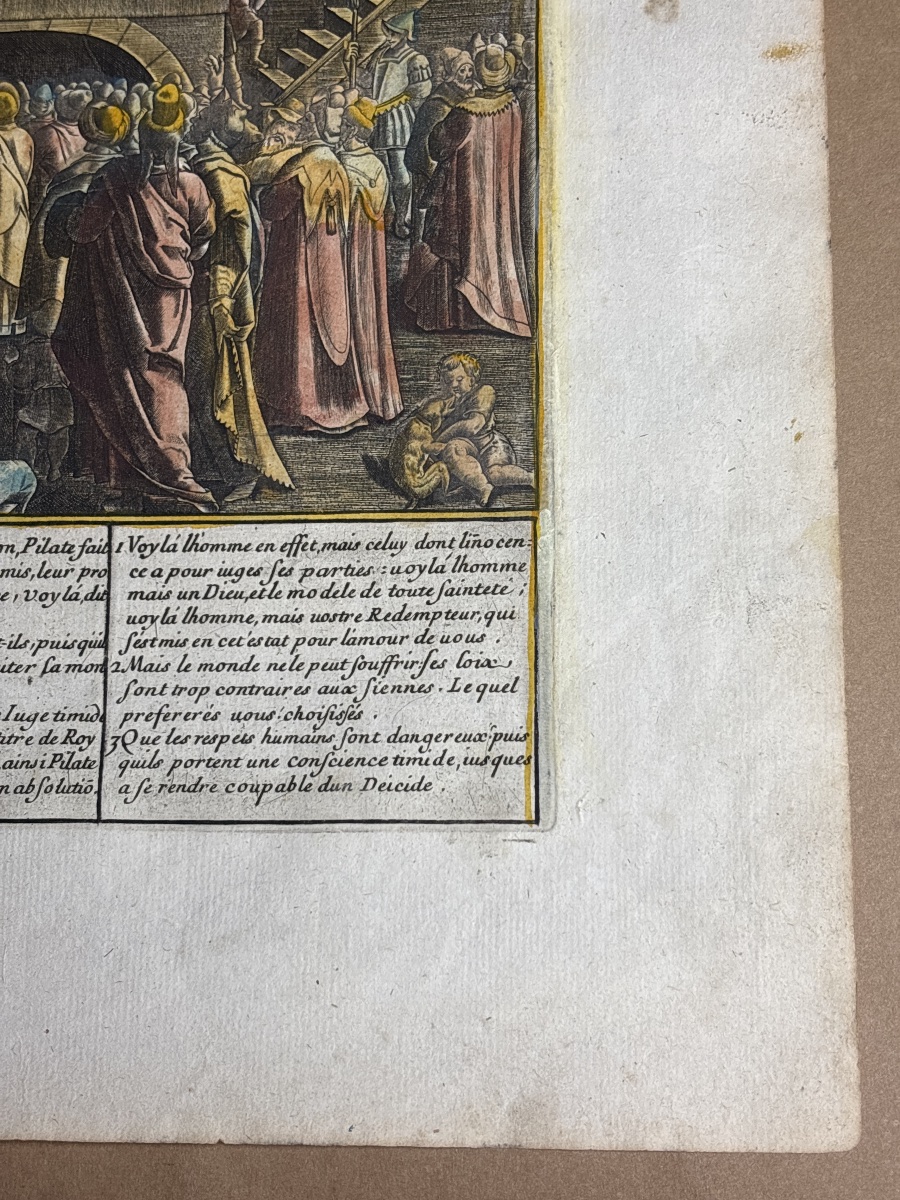 m, Pilate fait
mis, leur pro
e, voy lá, dit
t-ils, puis qũil
uter sa mort
Iuge timide
titre de Roy
ainsi Pilate
n absolutiõ.
1 Voy lá lhomme en effet, mais celuy dont lino cen=
ce a pour iuges ses parties : uoy lá lhomme
mais un Dieu, et le mo dele de toute sainteté ;
uoy lá lhomme, mais uostre Redempteur, qui
sést mis en cet éstat pour lámour de uous .
2 Mais le monde ne le peut souffrir: ses loix
sont trop contraires aux siennes . Le quel
preferer és uous: choisissés .
3 Que les respets humains sont danger eux: puis
quils portent une conscience timi de, iusques
a se rendre coupable dun Deicide .